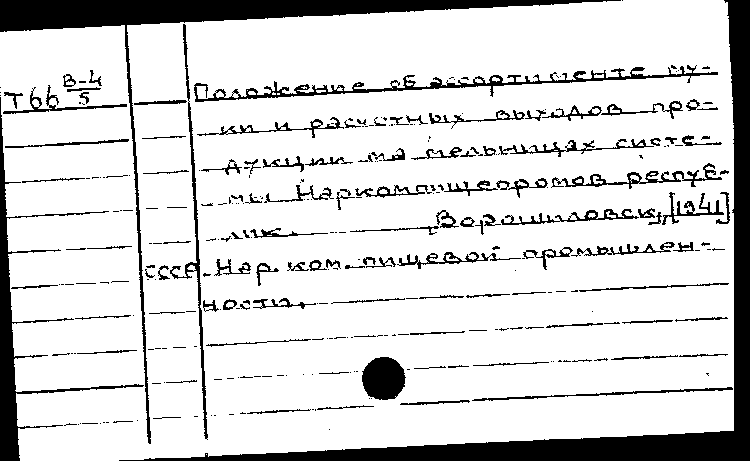 Т66 В-4/5
Положение об ассортименте му-
ки и расчетных выходов про-
дукции на мельницах систе-
мы Наркомпищепромов респуб-
лик. „Ворошиловск", [1941].
СССР. Нар. ком. пищевой промышлен-
ности.